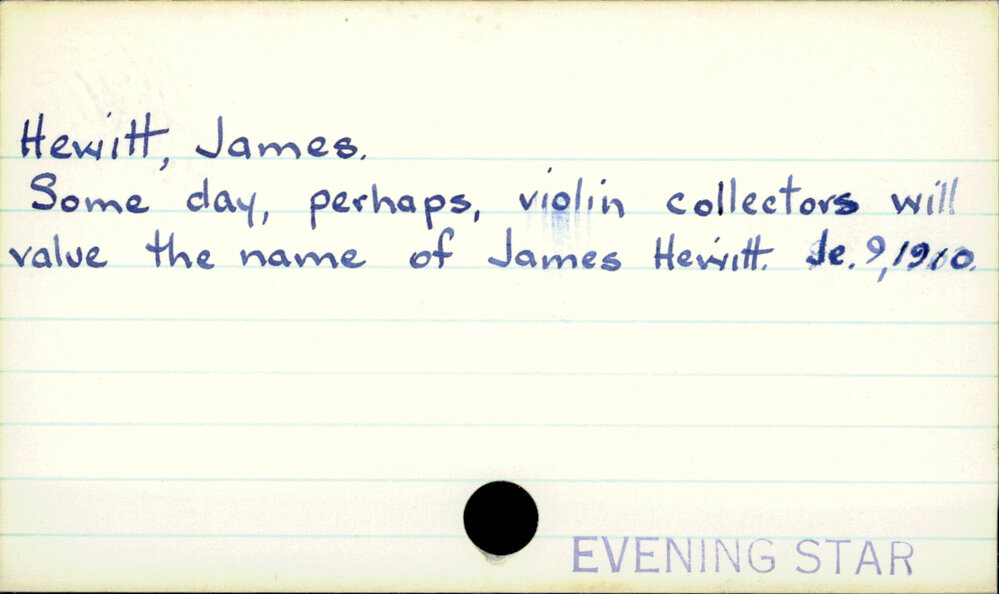 Hewitt, James.
Some day, perhaps, violin collectors will
value the name of James Hewitt. Se. 9, 1910.
EVENING STAR